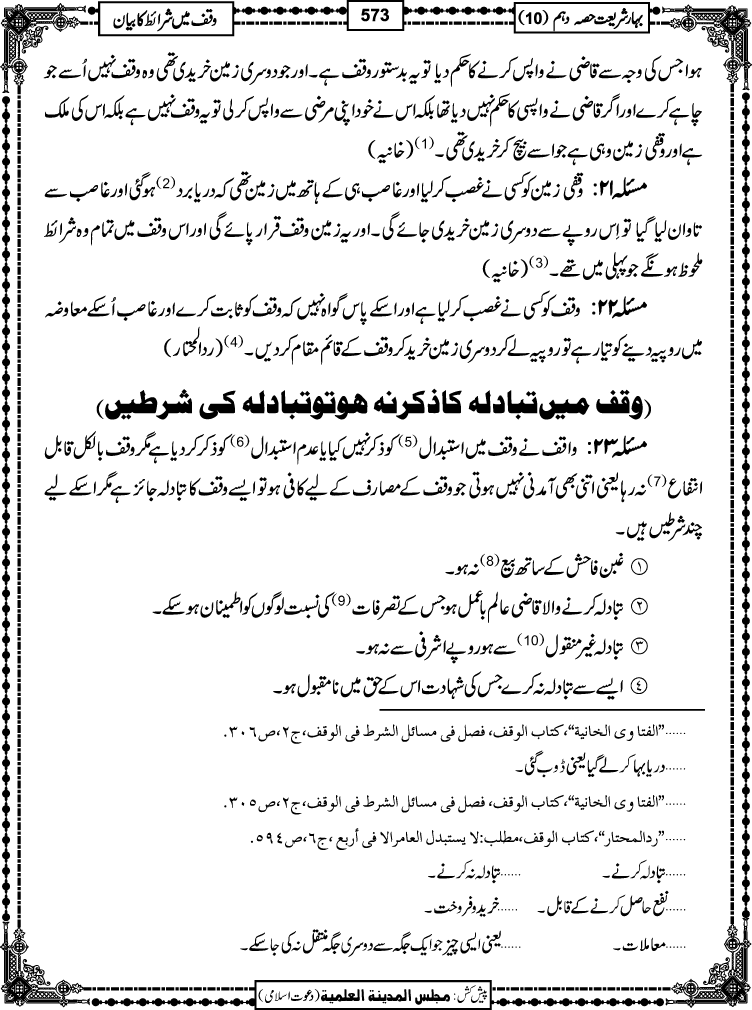 بہارِشریعت حصہ دہم (10)
573
وقف میں شرائط کا بیان
ہوا جس کی وجہ سے قاضی نے واپس کرنے کا حکم دیا تو یہ بدستور وقف ہے۔ اور جو دوسری زمین خریدی تھی وہ وقف نہیں اُسے جو
چاہے کرے اور اگر قاضی نے واپسی کا حکم نہیں دیا تھا بلکہ اس نے خود اپنی مرضی سے واپس کرلی تو یہ وقف نہیں ہے بلکہ اس کی ملک
ہے اور وقفی زمین وہی ہے جو اسے بیچ کر خریدی تھی۔(1) (خانیہ)
مسئلہ ۲۱: وقفی زمین کو کسی نے غصب کرلیا اور غاصب ہی کے ہاتھ میں زمین تھی کہ دریا برد(2) ہوگئی اور غاصب سے
تاوان لیا گیا تو اِس روپے سے دوسری زمین خریدی جائے گی۔ اور یہ زمین وقف قرار پائے گی اور اس وقف میں تمام وہ شرائط
ملحوظ ہونگے جو پہلی میں تھے۔(3) (خانیہ)
مسئلہ ۲۲: وقف کو کسی نے غصب کرلیا ہے اور اسکے پاس گواہ نہیں کہ وقف کو ثابت کرے اور غاصب اُسکے معاوضہ
میں روپیہ دینے کو تیار ہے تو روپیہ لے کر دوسری زمین خرید کر وقف کے قائم مقام کردیں۔(4) (ردالمحتار)
(وقف میں تبادلہ کا ذکر نہ ہو تو تبادلہ کی شرطیں)
مسئلہ ۲۳: واقف نے وقف میں استبدال(5) کو ذکر نہیں کیا یا عدم استبدال(6) کو ذکر کردیا ہے مگر وقف بالکل قابل
انتفاع(7) نہ رہا یعنی اتنی بھی آمدنی نہیں ہوتی جو وقف کے مصارف کے لیے کافی ہو تو ایسے وقف کا تبادلہ جائز ہے مگر اسکے لیے
چند شرطیں ہیں۔
① غبن فاحش کے ساتھ بیع(8) نہ ہو۔
② تبادلہ کرنے والا قاضی عالم باعمل ہو جس کے تصرفات(9) کی نسبت لوگوں کو اطمینان ہوسکے۔
③ تبادلہ غیر منقول(10) سے ہو روپے اشرفی سے نہ ہو۔
④ ایسے سے تبادلہ نہ کرے جس کی شہادت اس کے حق میں نامقبول ہو۔
......”الفتاوی الخانیۃ“،کتاب الوقف، فصل فی مسائل الشرط فی الوقف،ج۲،ص۳۰۶.
......دریا بہا کر لے گیا یعنی ڈوب گئی۔
......”الفتاوی الخانیۃ“،کتاب الوقف، فصل فی مسائل الشرط فی الوقف،ج۲،ص۳۰۵.
......”ردالمحتار“،کتاب الوقف،مطلب:لا یستبدل العامر الا فی أربع،ج۶،ص۵۹۴.
......تبادلہ کرنے۔ ......تبادلہ نہ کرنے۔
......نفع حاصل کرنے کے قابل۔ ......خرید و فروخت۔
......معاملات۔ ......یعنی ایسی چیز جو ایک جگہ سے دوسری جگہ منتقل نہ کی جاسکے۔
پیش کش: مجلس المدینۃ العلمیۃ (دعوت اسلامی)